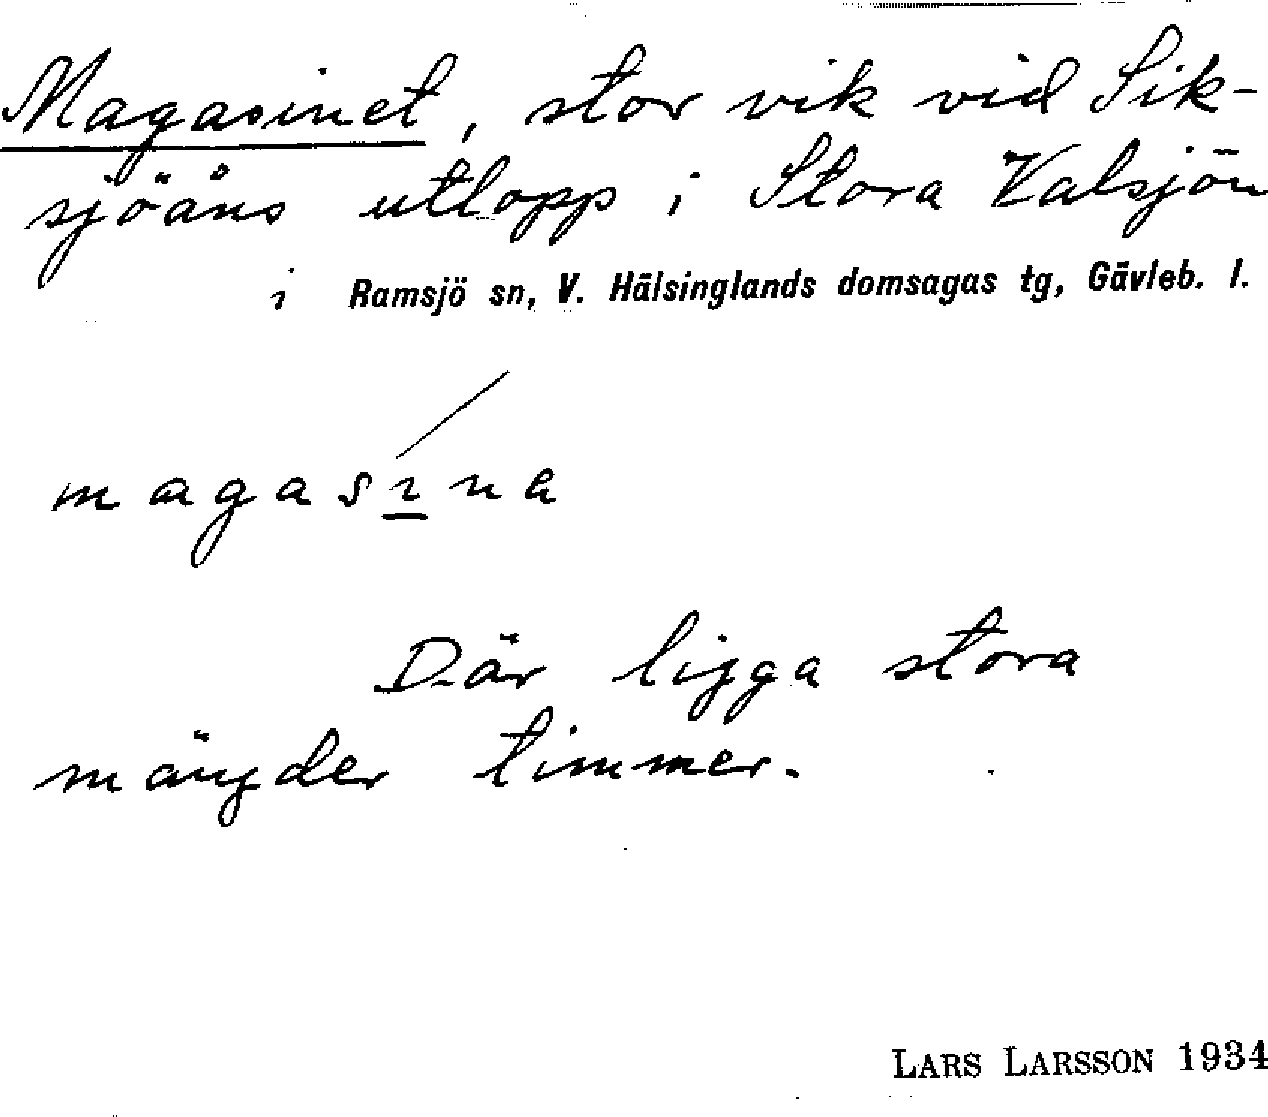 Magasinet, stor vik vid Sik-
sjöåns utlopp i Stora Valsjön
i Ramsjö sn, V. Hälsinglands domsagas tg, Gävleb. l.
magasına
Där ligga stora
mängder timmer.
LARS LARSSON 1934